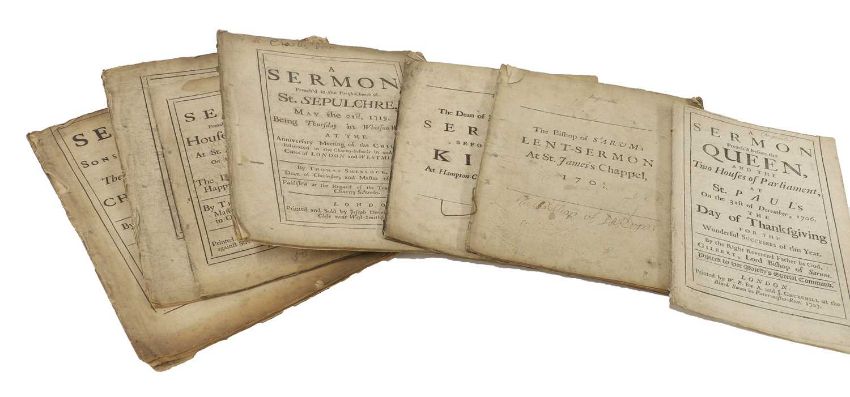 SE
SONS
The
C
By
SE
Preach'd
House
At St.
On
The
Happ
By T
Master
Printed
against
A
SERMON
Preach'd in the Parish-Church of
St. SEPULCHRE,
MAY the 21st, 1719.
Being Thursday in Whitsun-W
AT THE
Anniversary Meeting of the
Educated in the Charity-Schools in and
Cities of LONDON and WESTM
By THOMAS SHERLOCK,
Dean of Chichester, and Master
Publish'd at the Request of the
Charity Schools.
LONDO
Printed and Sold by Joseph
Close near West-Smith
The Dean of
SER
BEFO
KI
At Hampton-C
The Bishop of SARUM's
LENT-SERMON
At St. James's Chappel,
170
The Bishop of
A
SERMON
Preach'd before the
QUEEN,
AND THE
Two Houses of Parliament,
AT
St. PAUL'S
On the 31st of December, 1706.
THE
Day of Thanksgiving
FOR THE
Wonderful Successes of this Year.
By the Right Reverend Father in God,
GILBERT, Lord Bishop of Sarum.
Printed by Her Majesty's Special Command.
LONDON
Printed by W. B. for A. and J. CHURCHILL at the
Black Swan in Paternoster-Row. 1707.